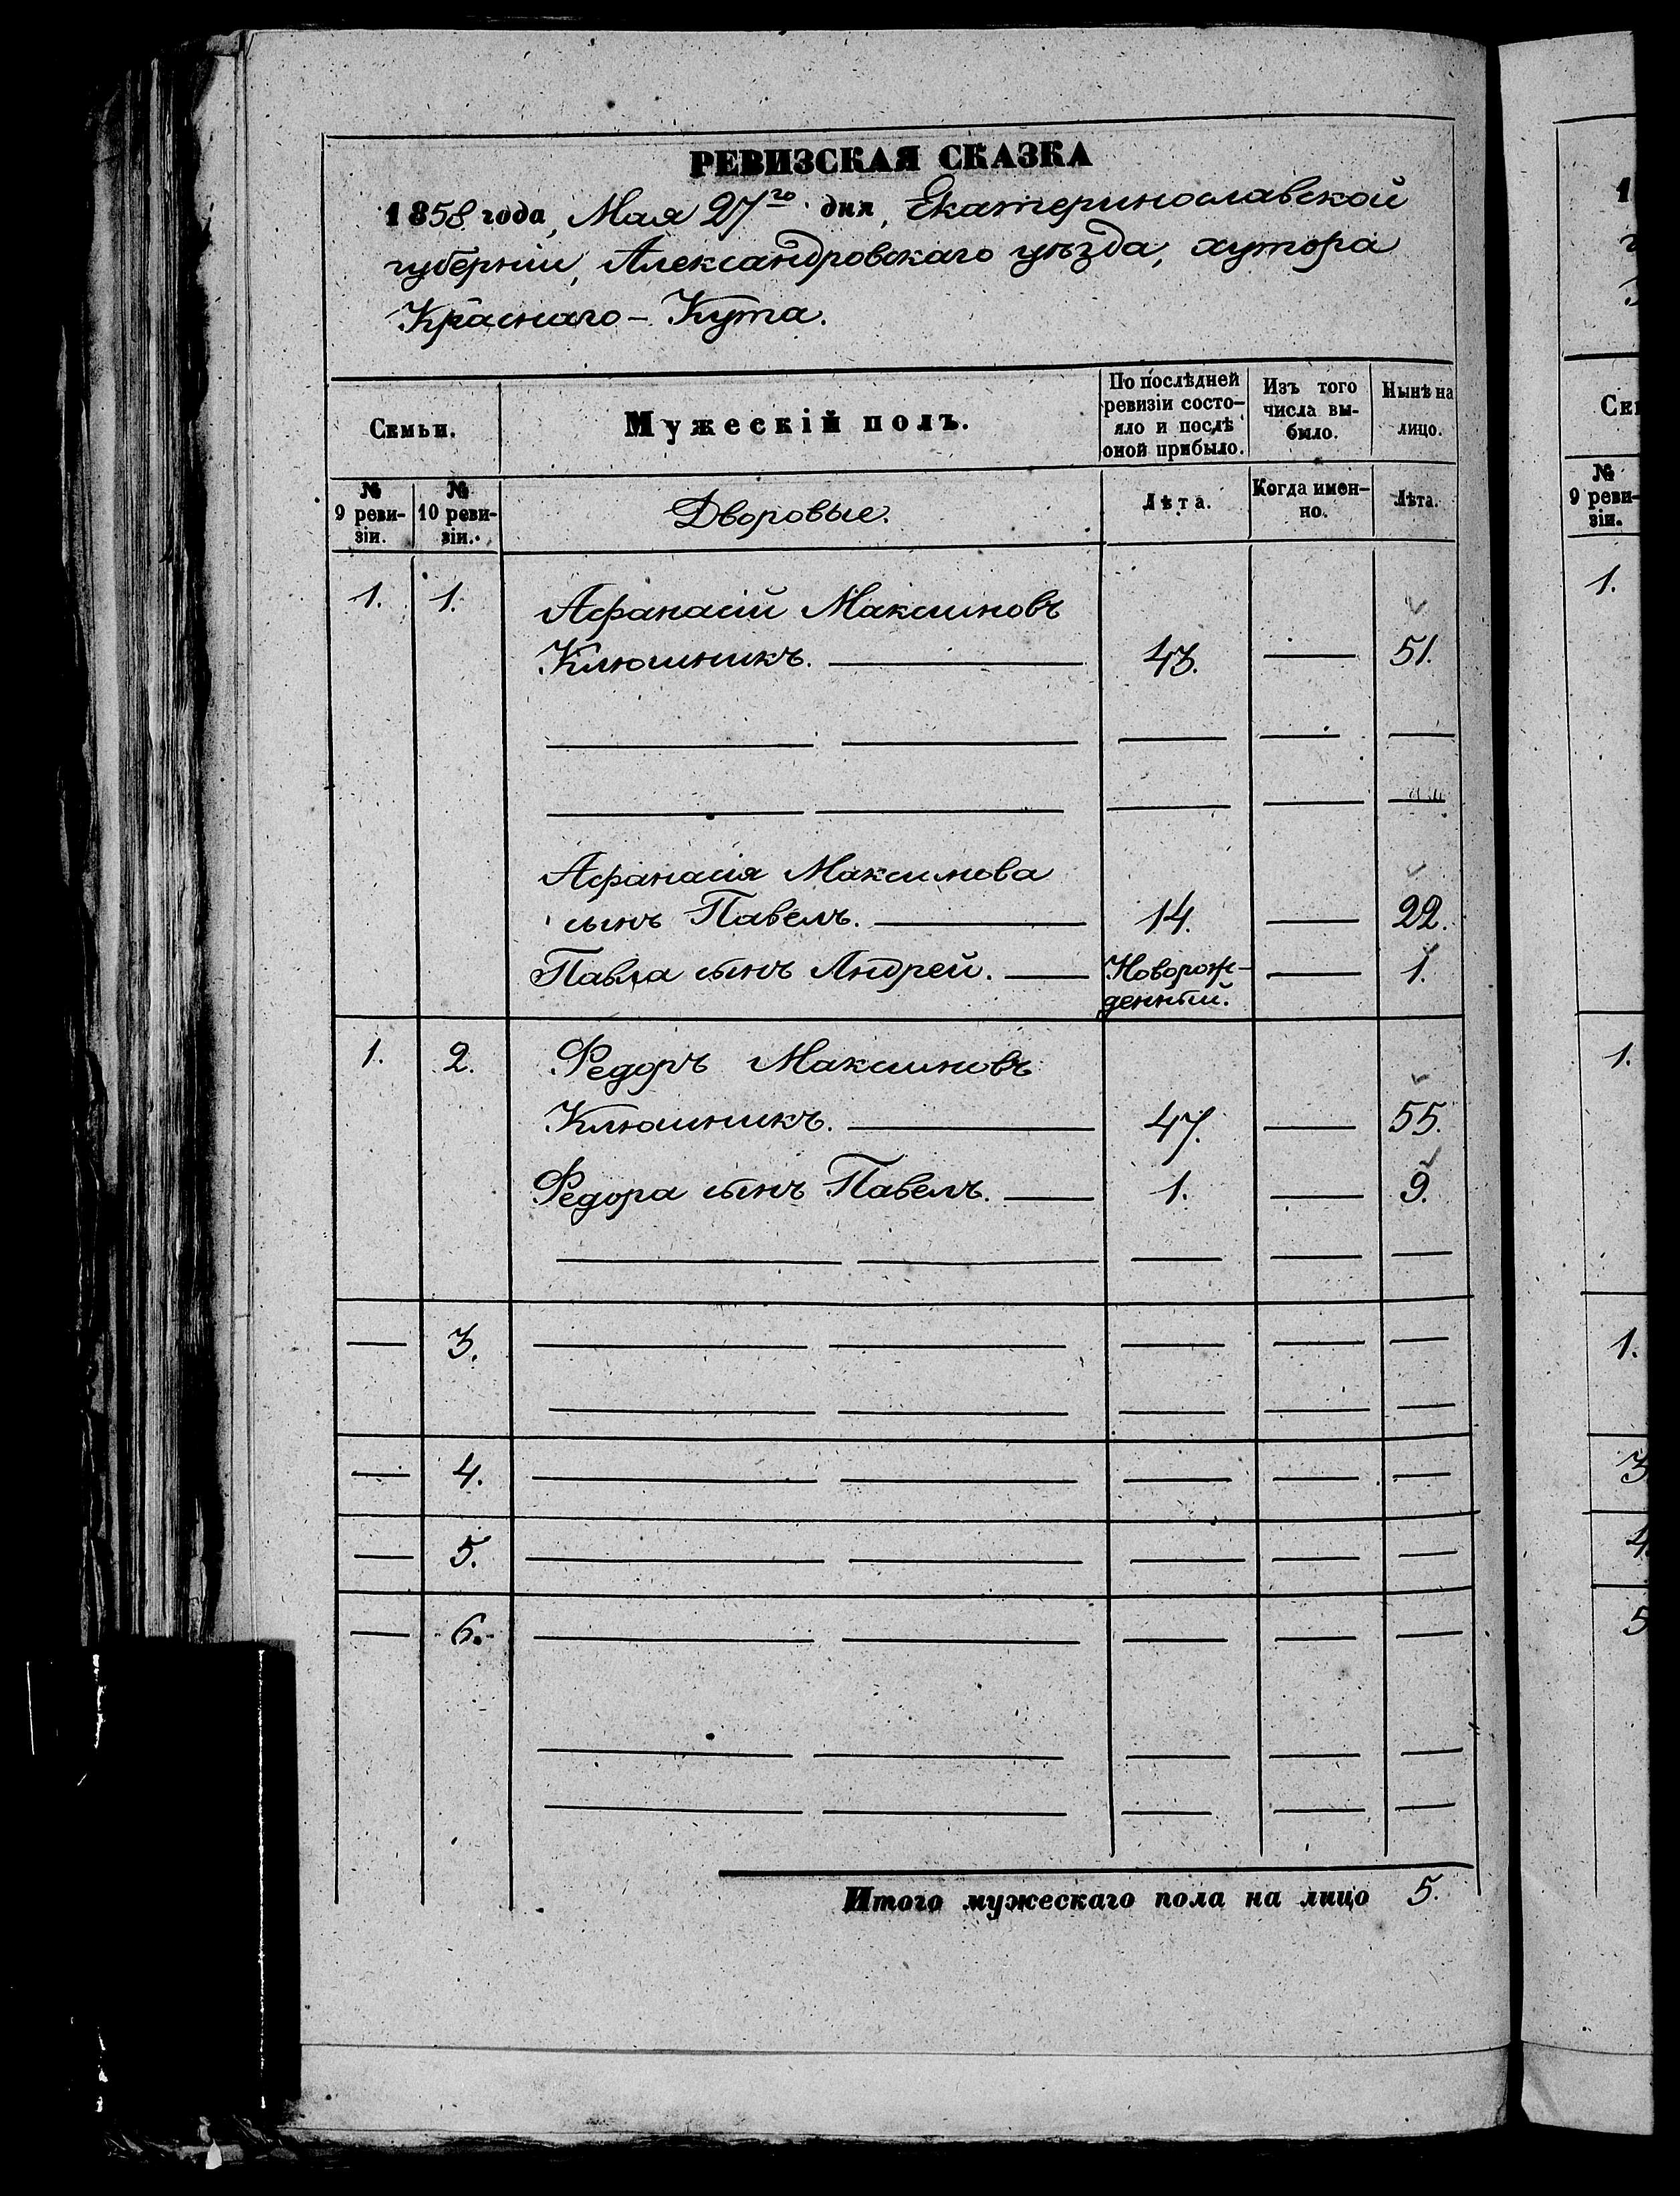 РЕВИЗСКАЯ СКАЗКА
1858 года, Мая 27го дня, Екатеринославской
губерніи, Александровскаго уѣзда, хутора
Краснаго-Кута.
Семьи.
Мужескій полъ.
По послѣдней
ревизіи состо-
яло и послѣ
оной прибыло.
Изъ того
числа вы-
было.
Нынѣ на
лицо.
№
9 реви-
зіи.
№
10 реви-
зіи.
Дворовые.
Лѣта.
Когда имен-
но.
Лѣта.
1. 1. Афанасій Максимовъ
Клюшникъ. — 43. — 51.
— — — — —
— — — — —
Афанасія Максимова
сынъ Павелъ. — 14. — 22.
Павла сынъ Андрей. — Новорож- — 1.
денный.
1. 2. Федоръ Максимовъ
Клюшникъ. — 47. — 55.
Федора сынъ Павелъ. — 1. — 9.
— — — — —
— 3. — — — — —
— — — — —
— 4. — — — — —
— 5. — — — — —
— 6. — — — — —
— — — — —
— — — — —
Итого мужескаго пола на лицо 5.
1
Сем
№
9 реви-
зіи.
1.
1.
1.
3
4
5